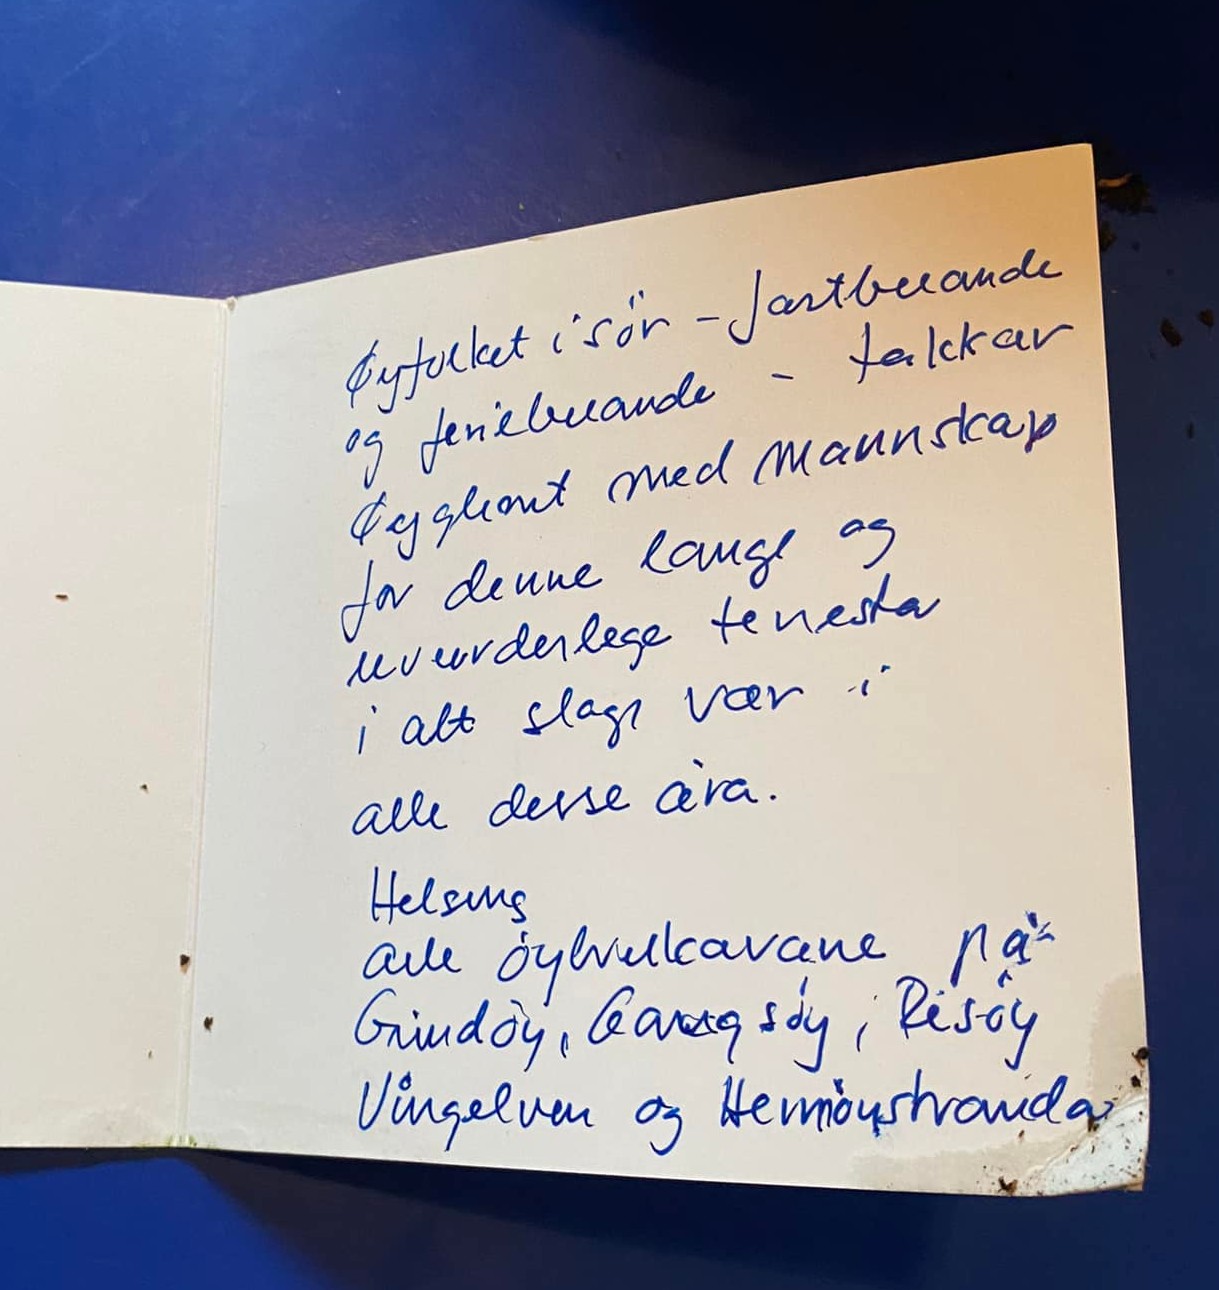 Øyfolket i sør - fastbuande
og feriebuande - takkar
Øyglimt med mannskap
for denne lange og
uvurderlege tenesta
i alt slags vær i
alle desse åra.
Helsing
alle øybrukarane på
Grindøy, Gangsøy, Risøy
Vingelven og Hermøystranda